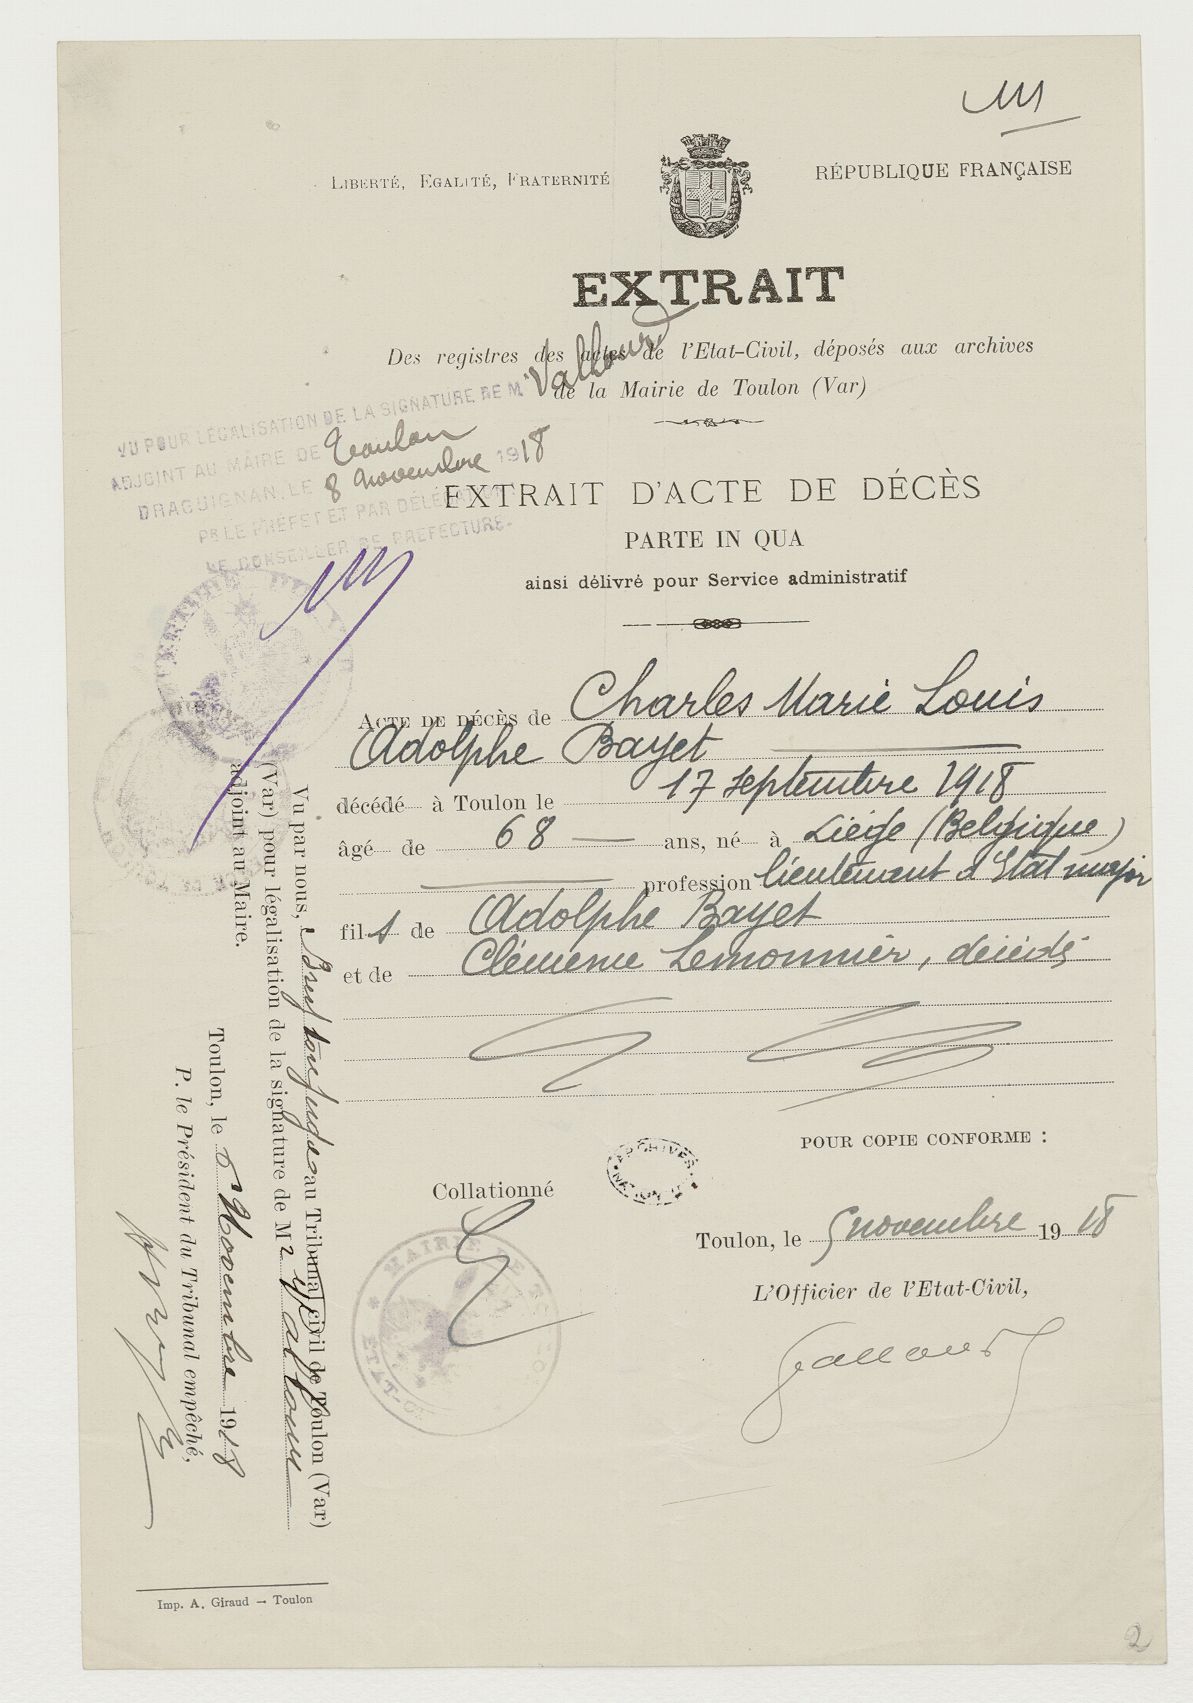 LIBERTÉ, EGALITÉ, FRATERNITÉ
RÉPUBLIQUE FRANÇAISE
EXTRAIT
Des registres des actes de l'Etat-Civil, déposés aux archives
de la Mairie de Toulon (Var)
VU POUR LÉGALISATION DE LA SIGNATURE DE M. Vallour
ADJOINT AU MAIRE DE Toulon
DRAGUIGNAN, LE 8 novembre 1918
PR LE PRÉFET ET PAR DÉLÉGATION
LE CONSEILLER DE PREFECTURE-
EXTRAIT D'ACTE DE DÉCÈS
PARTE IN QUA
ainsi délivré pour Service administratif
ACTE DE DÉCÈS de Charles Marie Louis
Adolphe Bayet
décédé à Toulon le 17 septembre 1918
âgé de 68 ans, né à Liége (Belgique)
profession lieutenant d'Etat major
fils de Adolphe Bayet
et de Clémence Lemonnier, décédés
POUR COPIE CONFORME :
Collationné
ARCHIVES
Toulon, le 5 novembre 1918
L'Officier de l'Etat-Civil,
Vallour
MAIRIE DE TOULON
ETAT-
Vu par nous, juge au Tribunal civil de Toulon (Var)
(Var) pour légalisation de la signature de Mr Vallour
adjoint au Maire.
Toulon, le 6 Novembre 1918
P. le Président du Tribunal empêché,
Imp. A. Giraud — Toulon
2